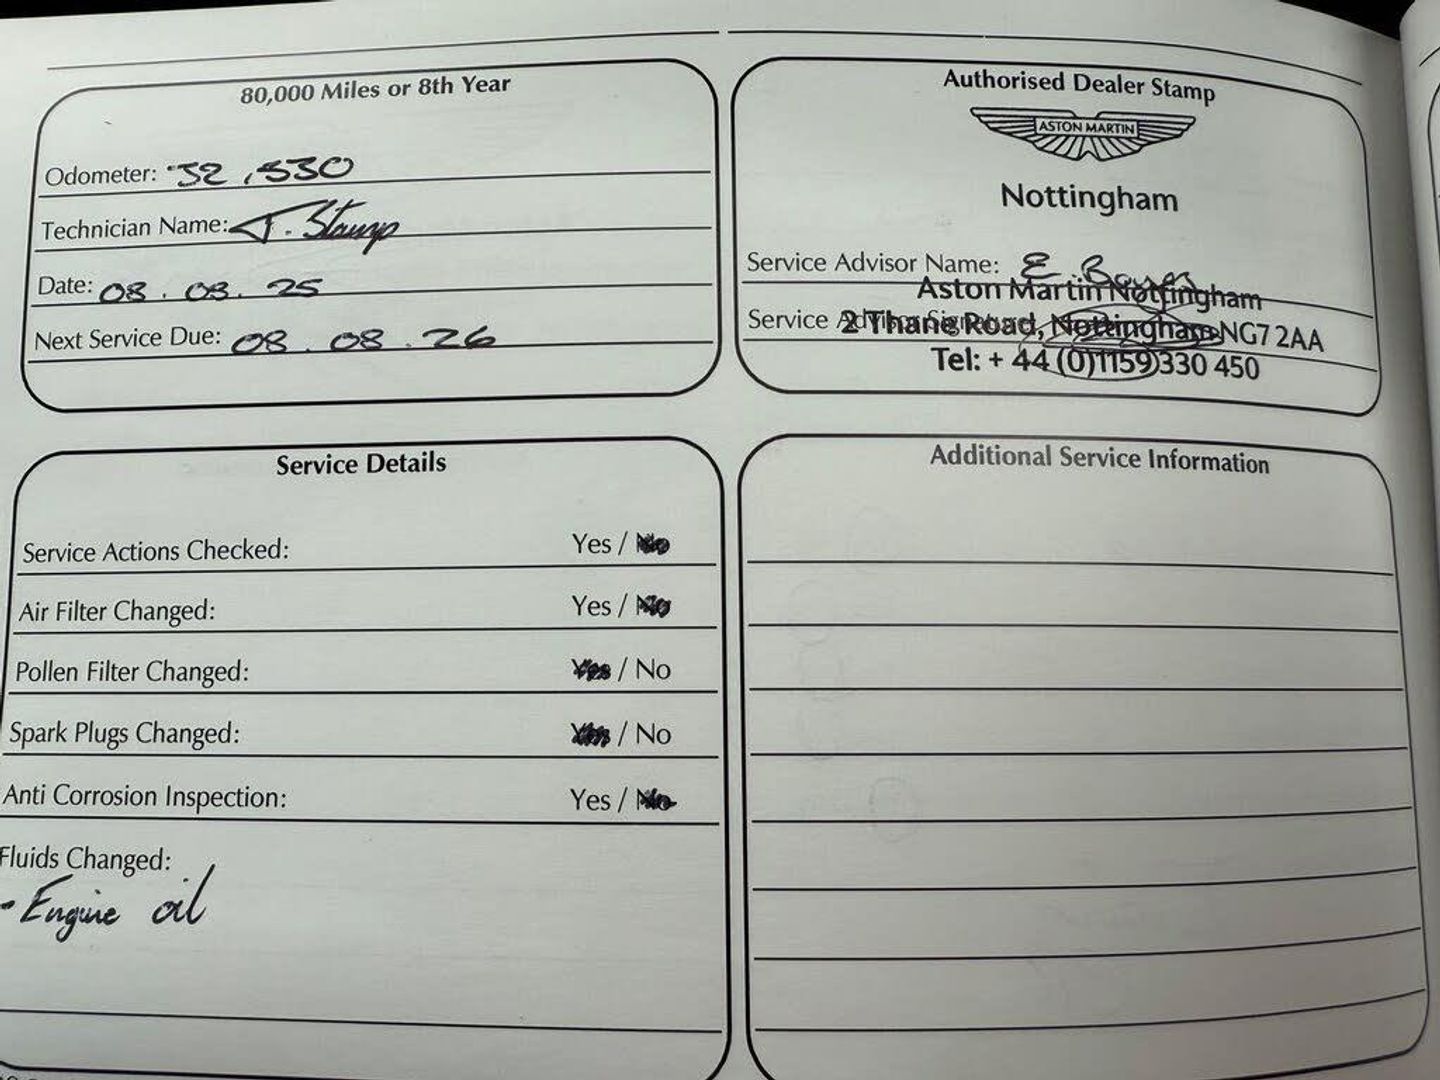 80,000 Miles or 8th Year
Odometer: 32,530
Technician Name: J. Stamp
Date: 08.08.25
Next Service Due: 08.08.26
Authorised Dealer Stamp
ASTON MARTIN
Nottingham
Service Advisor Name: E.
Aston Martin Nottingham
Service Advisor Signature:
2 Thane Road, Nottingham NG7 2AA
Tel: + 44 (0)1159 330 450
Service Details
Service Actions Checked: Yes / No
Air Filter Changed: Yes / No
Pollen Filter Changed: Yes / No
Spark Plugs Changed: Yes / No
Anti Corrosion Inspection: Yes / No
Fluids Changed:
- Engine oil
Additional Service Information